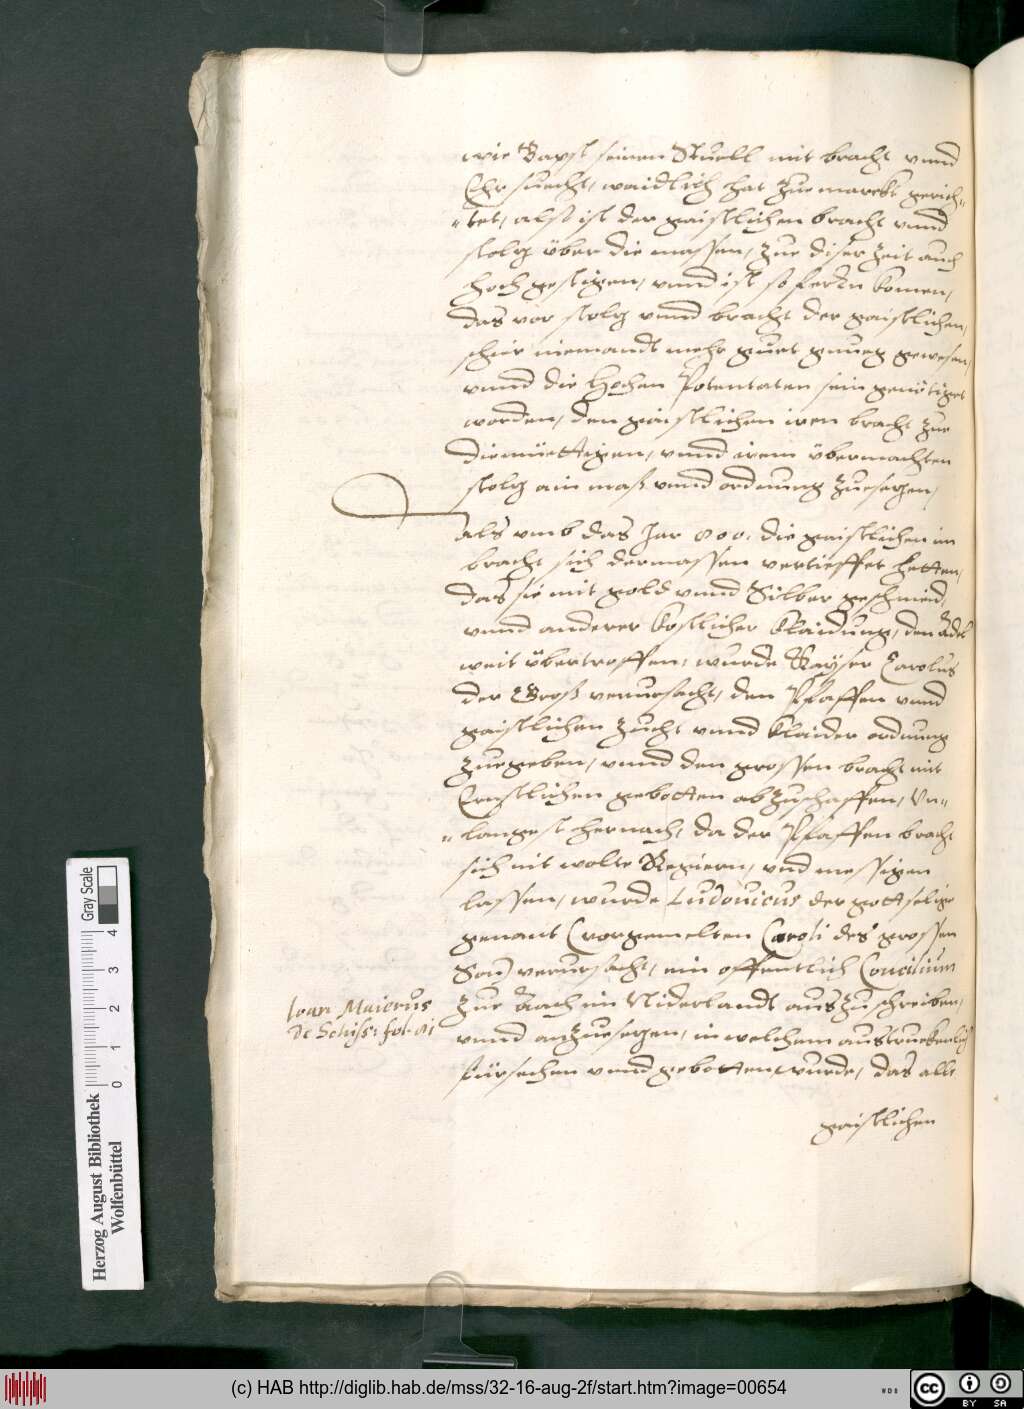 wie Bapst seinen Stuell mit bracht vnnd
Ehrsucht, waidlich hat zue marckt gerich-
-tet, alß ist der gaistlichen bracht vnnd
stoltz über die massen, zue diser zeit auch
hoch gestigen, vnnd ist so fer komen,
das vor stoltz vnnd bracht der gaistlichen,
schir niemandt mehr guet gnueg gewesen,
vnnd die Hochen Potentaten sein genötiget
worden, den gaistlichen iren bracht zue
diemüettigen, vnnd irem übermachten
stoltz ain maß vnnd ordnung zuesetzen,
als vmb das Jar 800. die gaistlichen im
bracht sich dermassen vertieffet hetten,
das sie mit gold vnnd Silber geschmeid,
vnnd anderer kostlicher Klaidung, den Adel
weit übertroffen, wurde Kayser Carolus
der Groß verursacht, den Pfaffen vnnd
gaistlichen zucht vnnd Klaider ordnung
zuegeben, vnnd den grossen bracht mit
Ernstlichen gebotten abzuschaffen, Vn-
-langest hernach, da der Pfaffen bracht
sich nit wolte Regiern, vnd messigen
lassen, wurde Ludouicus der gottselige
genant (vorgemelten Caroli des grossen
Son) verursacht, ein offentlich Concilium
zue Aach im Niderlandt auszuschreiben,
vnnd anzuesetzen, in welchem austruckenlich
fürsehen vnnd gebotten wurde, das alle
gaistlichen
Ioan Maierus
De Schiss: fol.
Herzog August Bibliothek
Wolfenbüttel
0 1 2 3 4
Gray Scale
(c) HAB http://diglib.hab.de/mss/32-16-aug-2f/start.htm?image=00654
WDB
CC BY SA